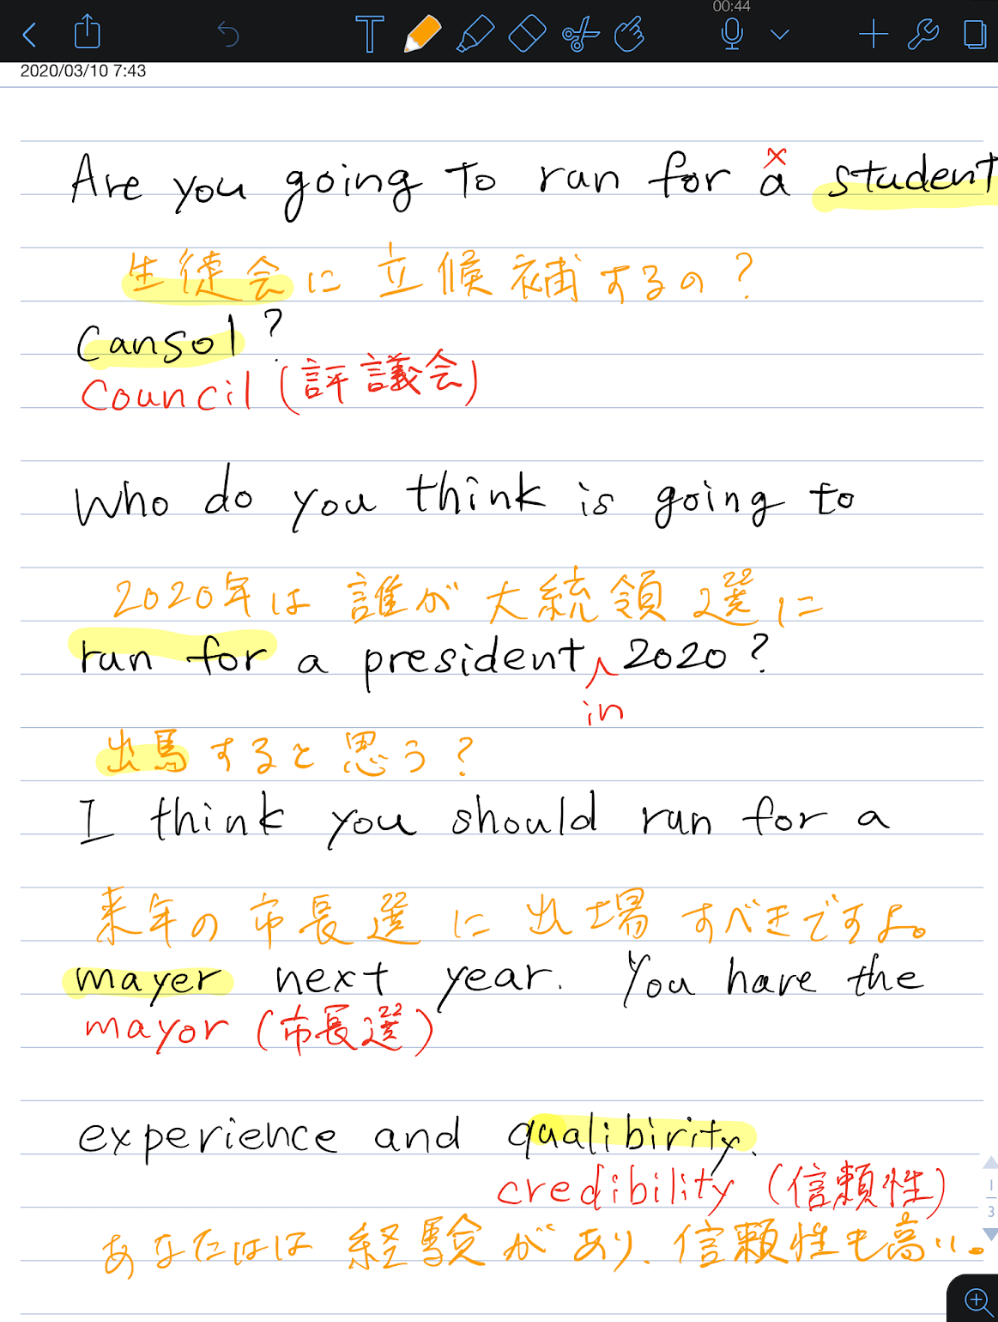 00:44
2020/03/10 7:43
×
Are you going to run for a student
生徒会に立候補するの？
cansol?
council (評議会)
Who do you think is going to
2020年は誰が大統領選に
run for a president 2020?
in
出馬すると思う？
I think you should run for a
来年の市長選に出場すべきですよ。
mayer next year. You have the
mayor (市長選)
experience and qualibirity.
credibility (信頼性)
あなたはは経験があり、信頼性も高い。
1
3